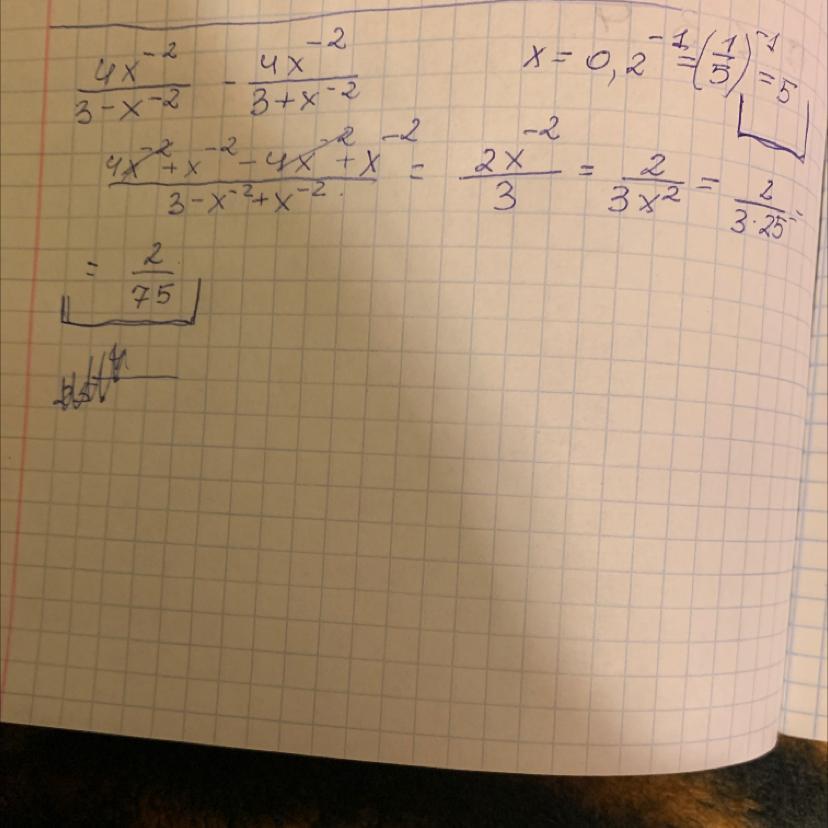 4x⁻² / 3 - x⁻² - 4x⁻² / 3 + x⁻²
x = 0,2⁻¹ = (1/5)⁻¹ = 5
4x⁻² + x⁻² - 4x⁻² + x⁻² / 3 - x⁻² + x⁻² = 2x⁻² / 3 = 2 / 3x² = 2 / 3·25 =
= 2 / 75